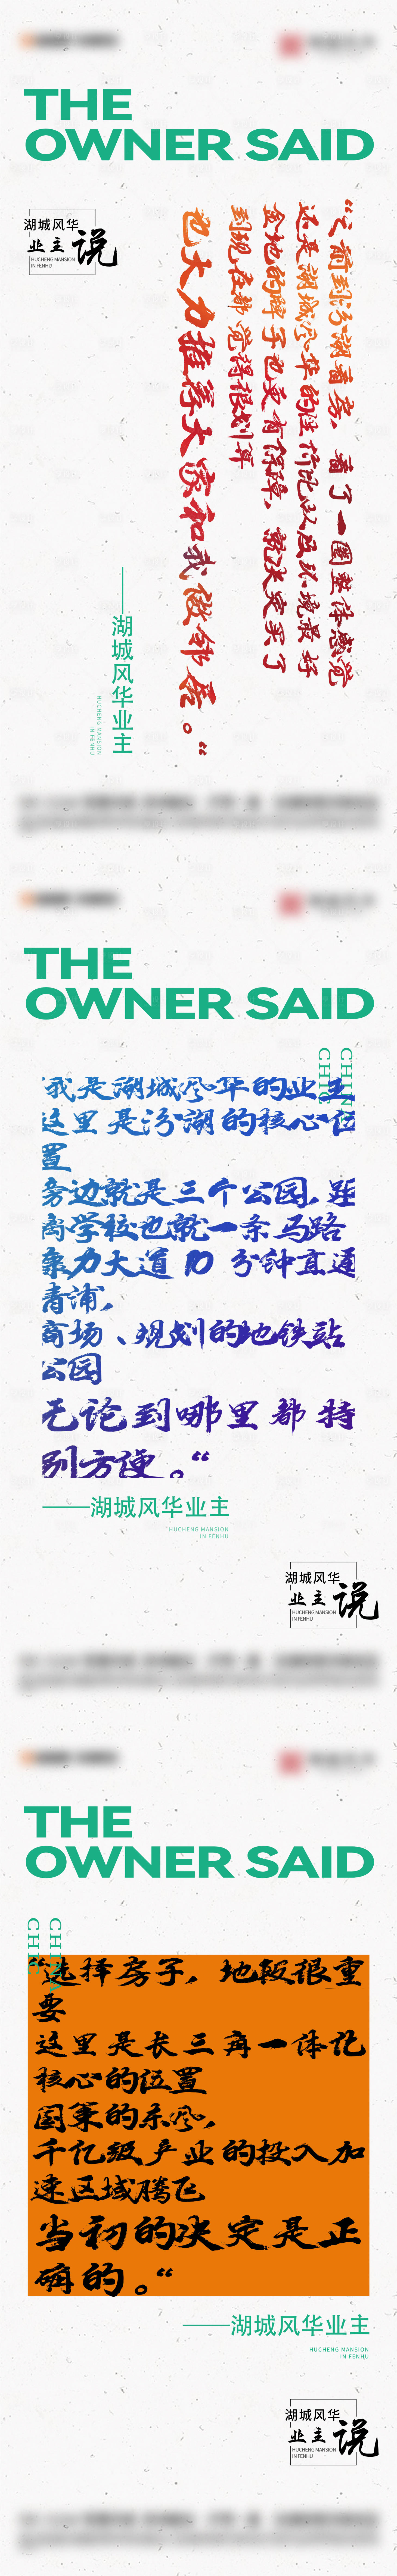 THE
OWNER SAID
湖城风华
业主说
HUCHENG MANSION
IN FENHU
“之前到汾湖看房，看了一圈整体感觉
还是湖城风华的性价比以及环境最好
金地的牌子也更有保障，就决定买了
到现在都觉得很划算
也大力推荐大家和我做邻居。“
——湖城风华业主
HUCHENG MANSION
IN FENHU
THE
OWNER SAID
CHINA
CHIC
我是湖城风华的业主
这里是汾湖的核心位
置
旁边就是三个公园，距
离学校也就一条马路
康力大道10 分钟直通
青浦，
商场、规划的地铁站
公园
无论到哪里都特
别方便。“
——湖城风华业主
HUCHENG MANSION
IN FENHU
湖城风华
业主说
HUCHENG MANSION
IN FENHU
THE
OWNER SAID
CHINA
CHIC
选择房子，地段很重
要
这里是长三角一体化
核心的位置
国家的东风，
千亿级产业的投入加
速区域腾飞
当初的决定是正
确的。“
——湖城风华业主
HUCHENG MANSION
IN FENHU
湖城风华
业主说
HUCHENG MANSION
IN FENHU